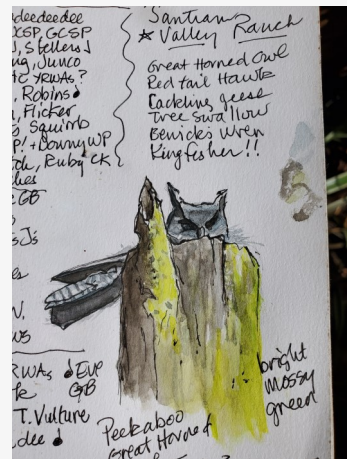 deedeedeedee
OCSP, GCSP
J, Stellers J
Junco
YRWAs?
, Robins
, Flicker
Squirrb
P! + Downy WP
Ruby CK
GB
sJ's
WS
RWAs Eve
GrB
T. Vulture
dee
Santram
* Valley Ranch
Great Horned Owl
Red tail Hawk
Cackling geese
Tree Swallow
Bewick's Wren
Kingfisher!!
bright
mossy
green
Peekaboo
Great Horned